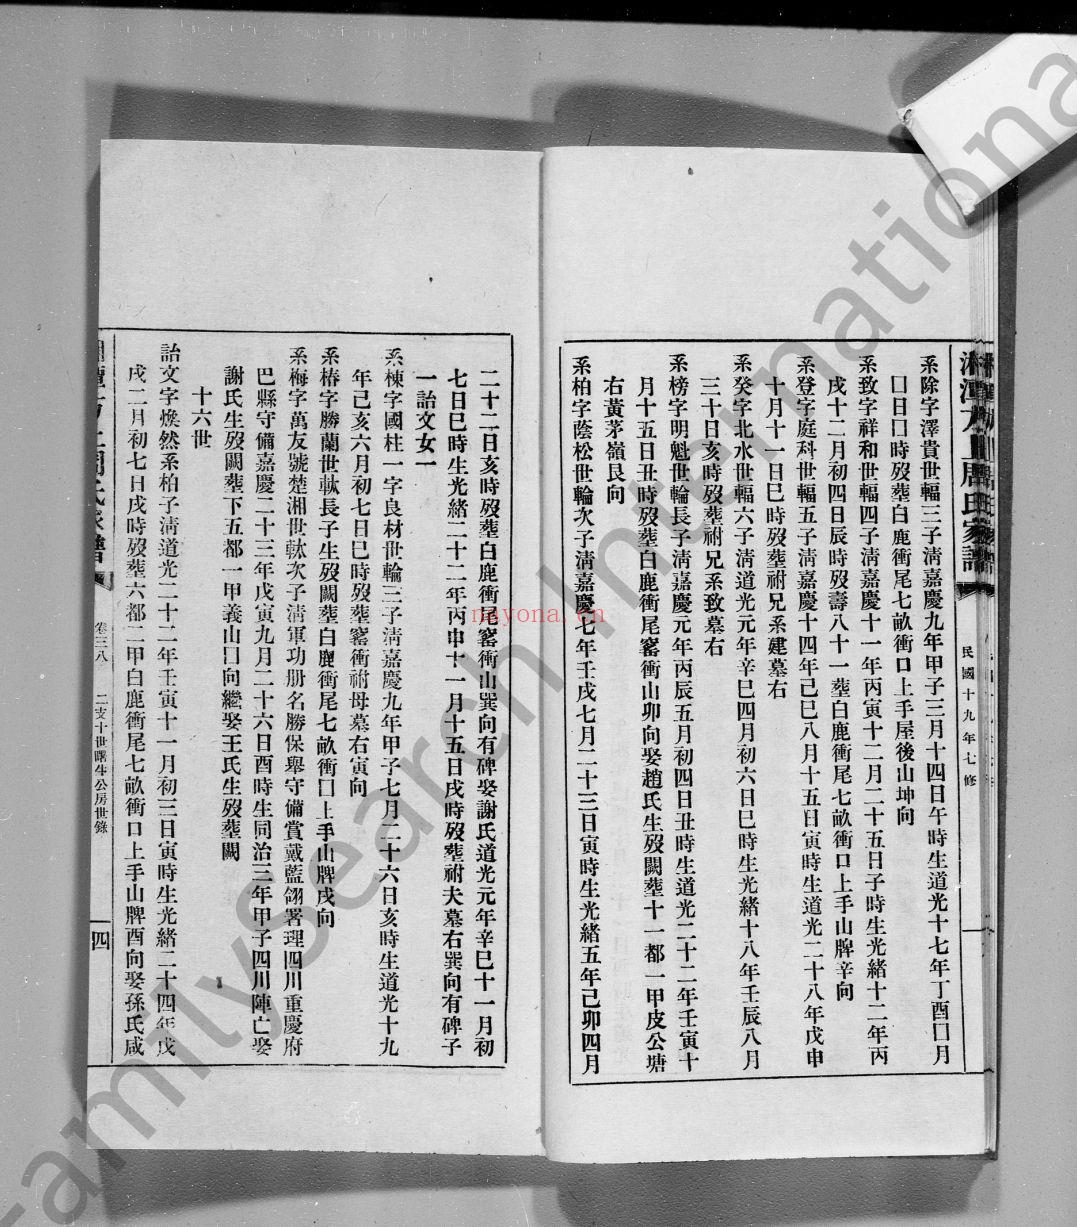 民國十九年七修
系除字澤貴世輻三子淸嘉慶九年甲子三月十四日午時生道光十七年丁酉囗月
囗日囗囗時歿葬白鹿衝尾七畝衝口上手屋後山坤向
系致字祥和世輻四子淸嘉慶十一年丙寅十二月二十五日子時生光緒十二年丙
戌十二月初四日辰時歿壽八十一葬白鹿衝尾七畝衝口上手山牌辛向
系登字庭科世輻五子淸嘉慶十四年己巳八月十五日寅時生道光二十八年戊申
十月十一日巳時歿葬祔兄系建墓右
系癸字北水世輻六子淸道光元年辛巳四月初六日巳時生光緒十八年壬辰八月
三十日亥時歿葬祔兄系致墓右
系榜字明魁世輪長子淸嘉慶元年丙辰五月初四日丑時生道光二十二年壬寅十
月十五日丑時歿葬白鹿衝尾窰衝山卯向娶趙氏生歿闕葬十一都一甲皮公塘
右黃茅嶺艮向
系柏字蔭松世輪次子淸嘉慶七年壬戌七月二十三日寅時生光緒五年己卯四月
二十二日亥時歿葬白鹿衝尾窰衝山巽向有碑娶謝氏道光元年辛巳十一月初
七日巳時生光緒二十二年丙申十一月十五日戌時歿葬祔夫墓右巽向有碑子
一詒文女一
系棟字國柱一字良材世輪三子淸嘉慶九年甲子七月二十六日亥時生道光十九
年己亥六月初七日巳時歿葬窰衝祔母墓右寅向
系椿字勝蘭世軑長子生歿闕葬白鹿衝尾七畝衝口上手山牌戌向
系梅字萬友號楚湘世軑次子淸軍功册名勝保舉守備賞戴藍翎署理四川重慶府
巴縣守備嘉慶二十三年戊寅九月二十六日酉時生同治三年甲子四川陣亡娶
謝氏生歿闕葬下五都一甲義山囗向繼娶王氏生歿葬闕
十六世
詒文字煥然系柏子淸道光二十二年壬寅十一月初三日寅時生光緒二十四年戊
戌二月初七日戌時歿葬六都二甲白鹿衝尾七畝衝口上手山牌酉向娶孫氏咸
卷三八 二支十世曙牛公房世錄 四